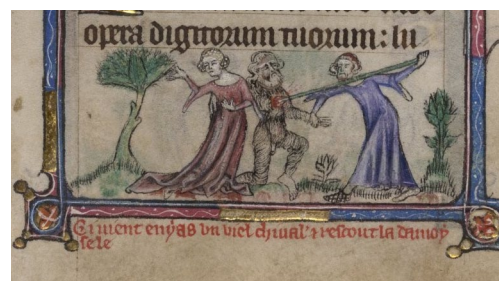 opera digitorum tuorum: lu
Ci vient enyas vn viel chiual' ⁊ rescout la damoy
sele